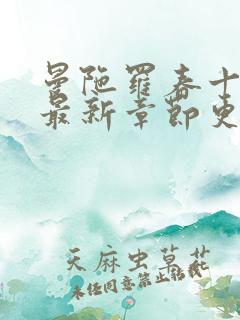 曼陀罗春十
最新章节更
天麻虫草花
未经同意禁止转载